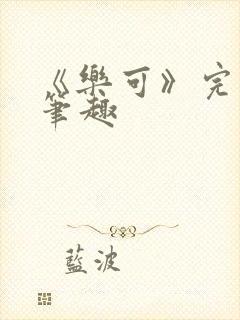 《樂可》完
筆趣
藍波